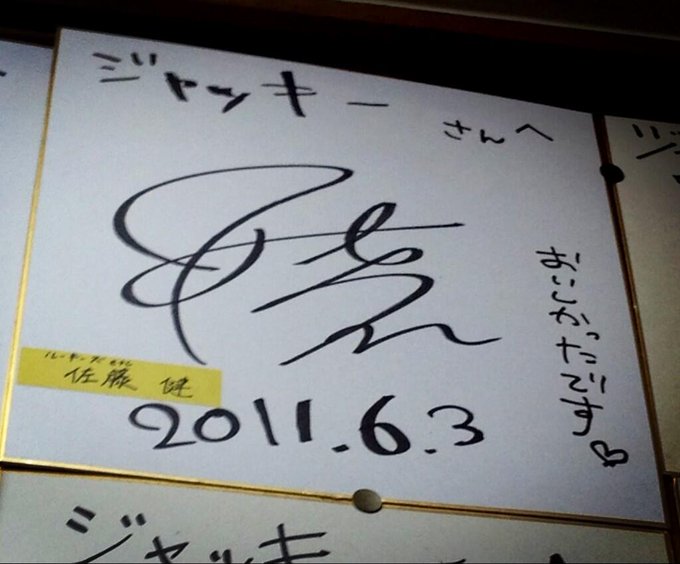 ジャッキー
さんへ
おいしかったです♡
ルーキーズ
佐藤 健
2011.6.3
ジャッキー